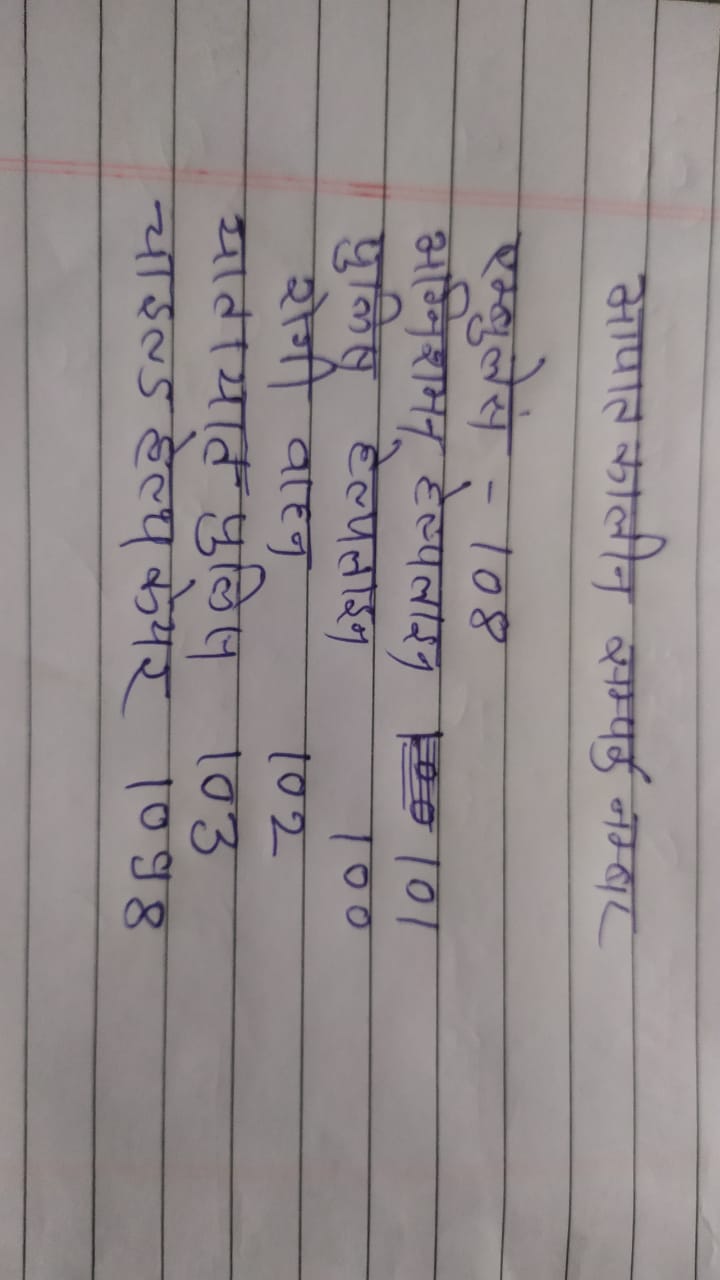 आपातकालीन सम्पर्क नम्बर
एम्बुलेंस - 108
अग्निशमन हेल्पलाइन 101
पुलिस हेल्पलाइन 100
रोगी वाहन 102
यातायात पुलिस 103
चाइल्ड हेल्प केयर 1098